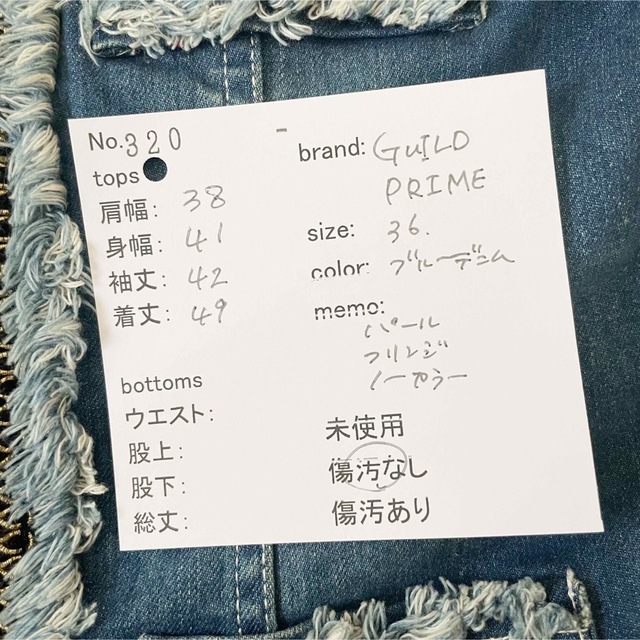 No.320
tops
肩幅: 38
身幅: 41
袖丈: 42
着丈: 49
brand: GUILD
PRIME
size: 36.
color: ブルーデニム
memo:
パール
フリンジ
ノーカラー
bottoms
ウエスト:
股上:
股下:
総丈:
未使用
傷汚なし
傷汚あり